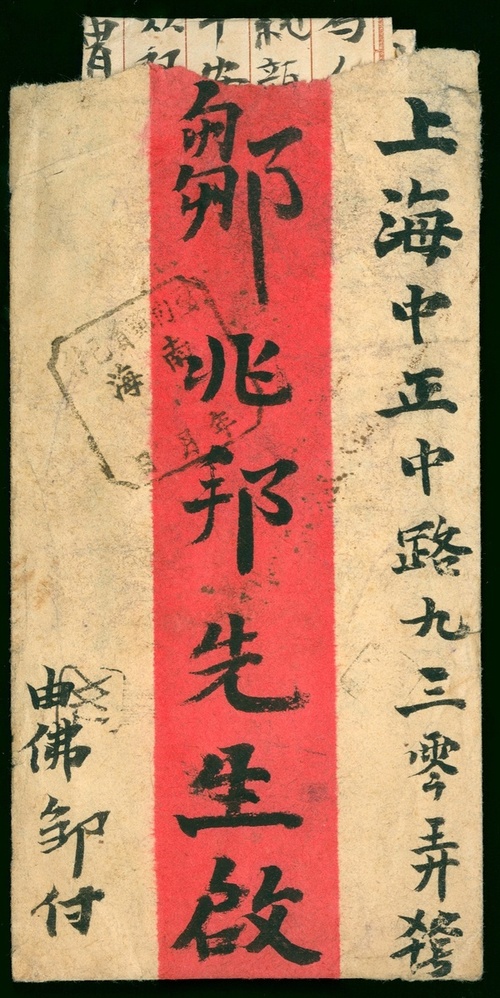 上海中正中路九三零弄
鄒兆邦先生啟
由佛郵付
南海
年月日